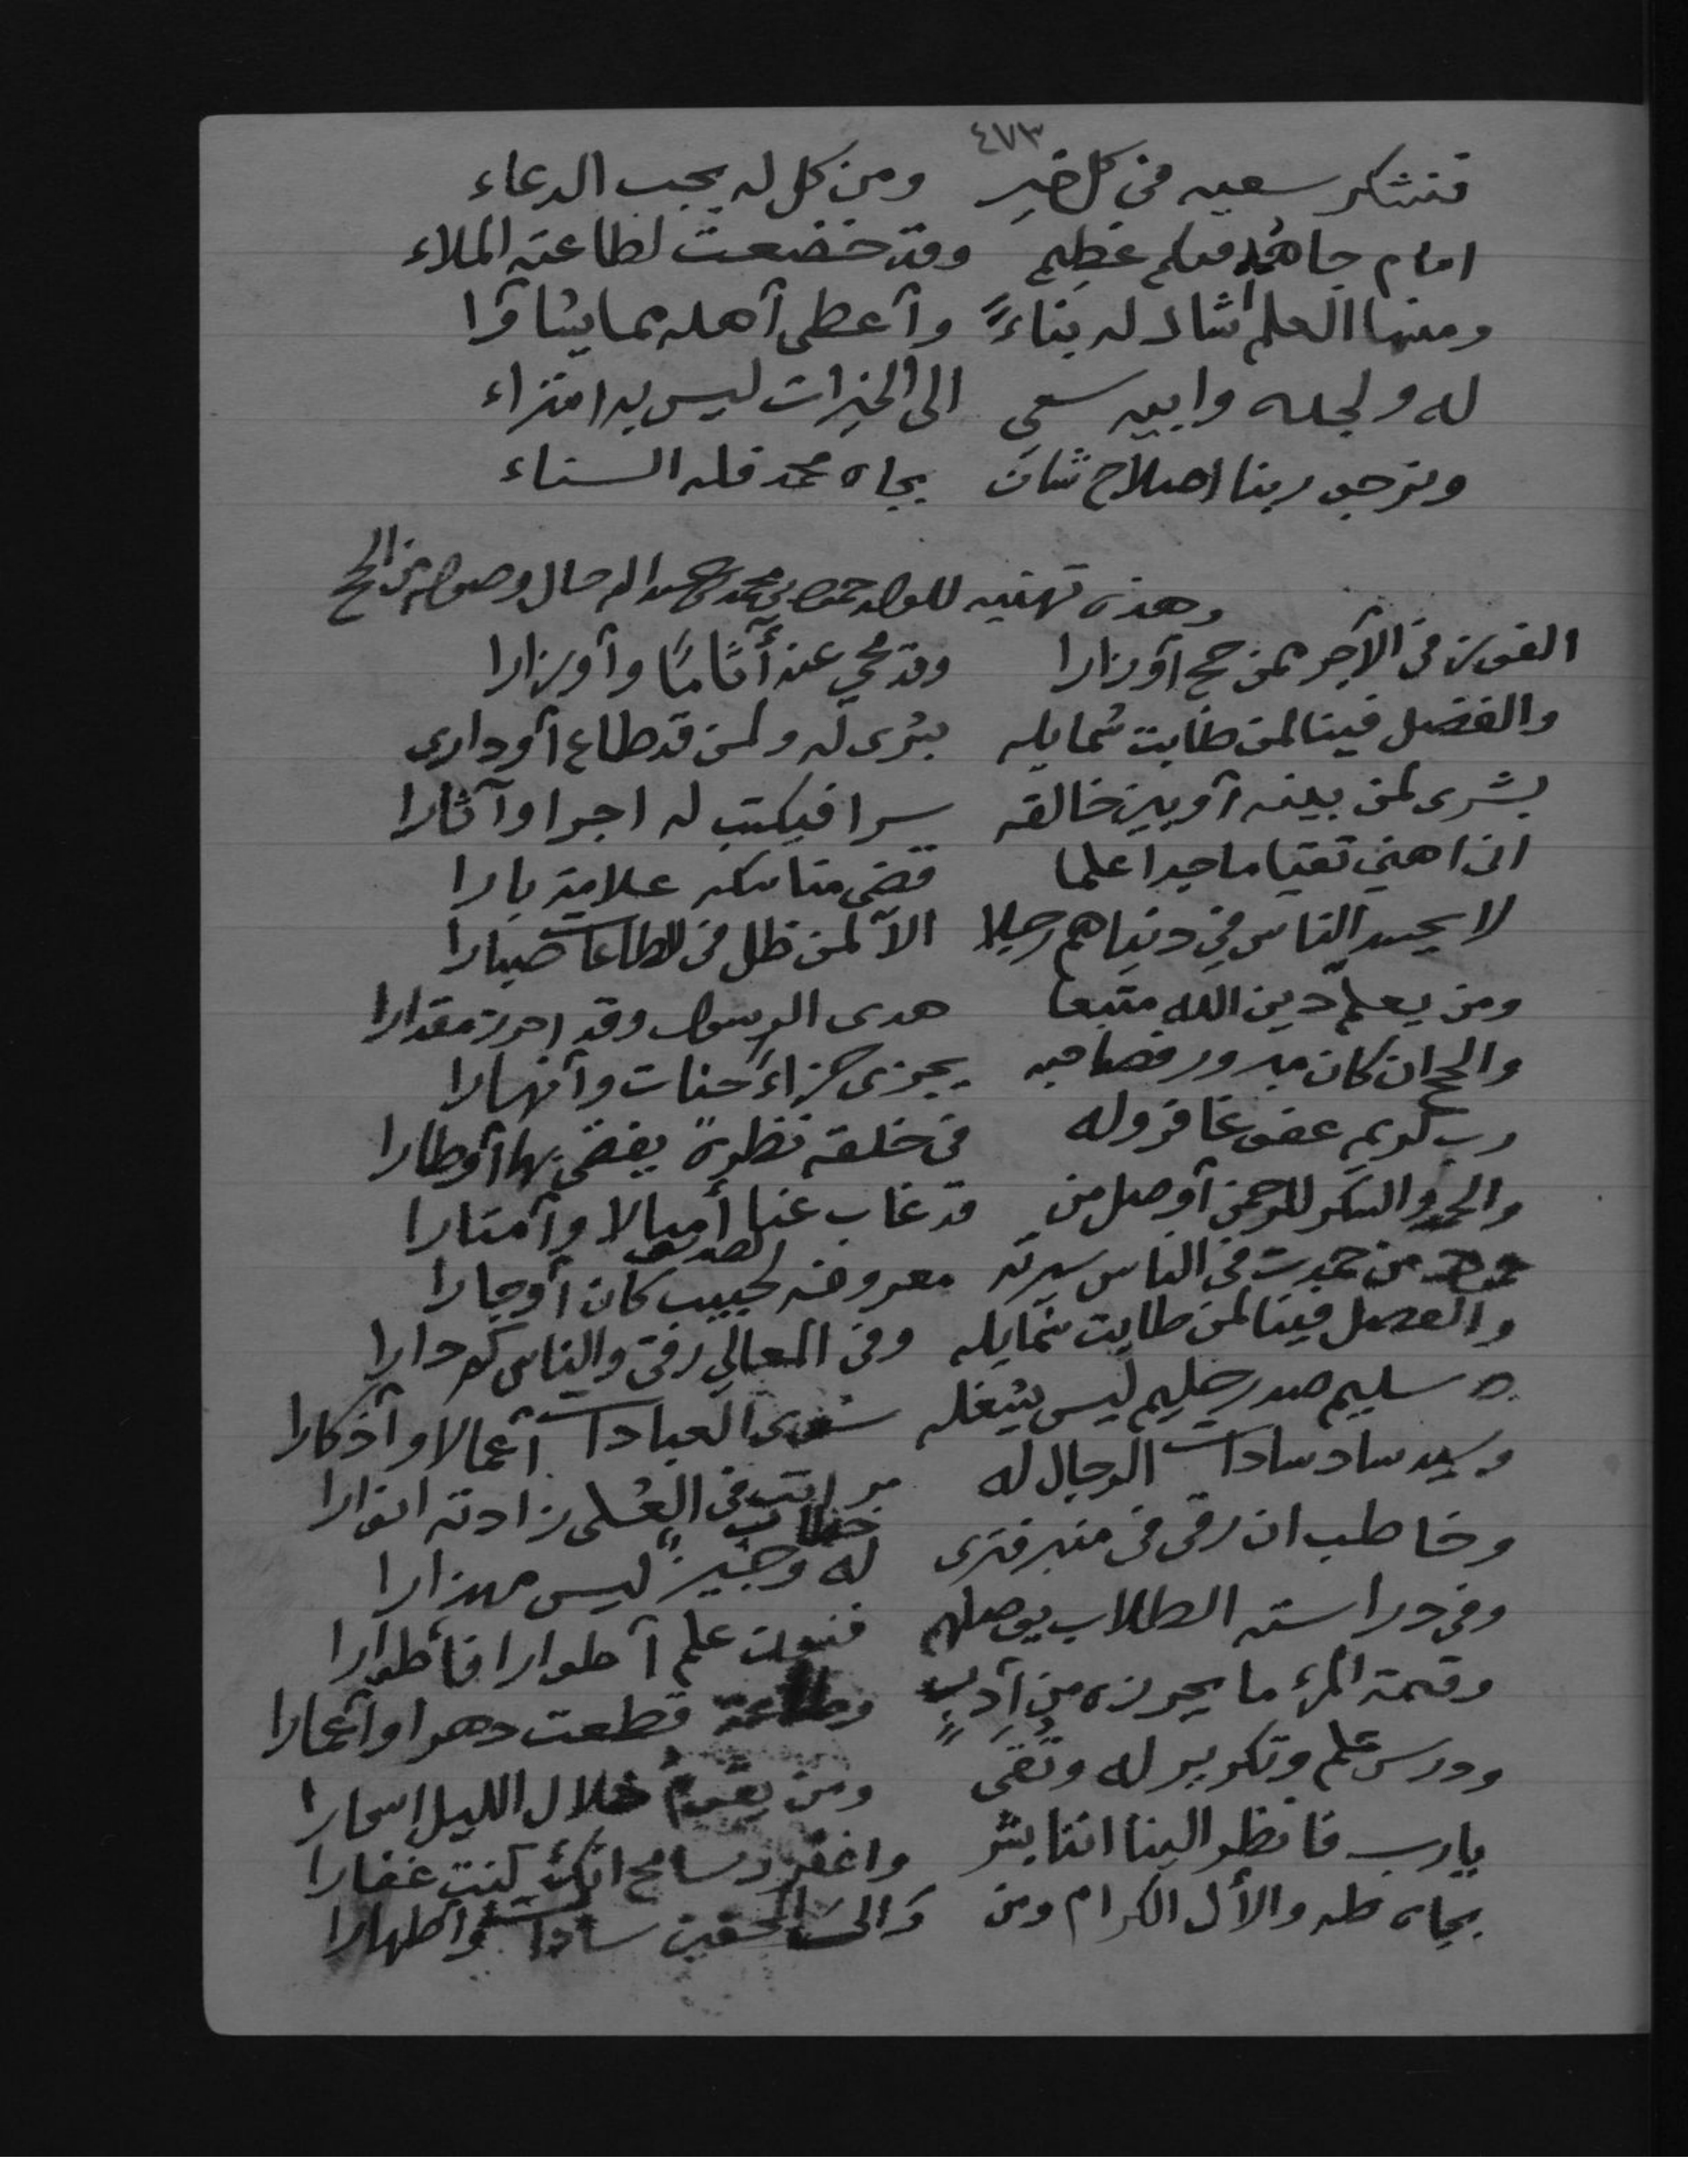 ٤٧٣
فنشكر سعيه في كل خير ومن كل له يجب الدعاء
امام جاهد ملك عظيم وقد خضعت لطاعته الملاء
ومنها العلم شاد له بناءً وآعطى آهله مما يشاؤا
له ولجده وابيه سعي الى الخيرات ليس به امتراء
ونرجو ربنا اصلاح شان بجاه محمد فله السناء
وهذه تهنيه للولد حمود بن محمد بن عبدالله حال وصوله من الحج
الفوز في الآجر لمن حج آو زارا وقد محي عنه أثامًا وآوزارا
والفضل فينا لمن طابت شمايله بشرى له ولمن قد طاع آو دارى
بشرى لمن بينه آو بين خالقه سرا فيكتب له اجرا وآثارا
اني اهني تقيا ماجدا علما قضى مناسكه علامة بارا
لا يحسد الناس في دنياهم رجلا الآ لمن ظل في الطاعات صبارا
ومن يعلم دين الله متبعا هدى الرسول وقد احرز مقدارا
والحج ان كان مبرور فصاحبه يجزى جزاءً جنات وآنهارا
رب كريم عفو غافر وله في خلقه نظرة يقضي بها آوطارا
والحمد والشكر للرحمن آوصل من قد غاب عنا أميالا وآمتارا
من حمدت في الناس سيرته معروفه لحبيب كان آو جارا
والفضل فينا لمن طابت شمايله وفي المعالي رقى والناس كم دارا
سليم صدر حليم ليس يشغله سوى العبادات آعمالا وآذكارا
وسيد ساد سادات الرجال له مراتب في العلى زادته انوارا
وخاطب ان رقى في منبر فترى له خطاب وجيز ليس مهزارا
وفي دراسته الطلاب يوصلهم فنون علم آطوارا فأطوارا
وقيمة المرء ما يحرزه من آدب قطعت دهرا وآعمارا
ودرس علم وتكرير له وتقى ومن يقوم خلال الليل اسحارا
يارب فانظر الينا اننا بشر واغفر وسامح انك كنت غفارا
بجاه طه والأل الكرام ومن وَالى سادات وآطهارا